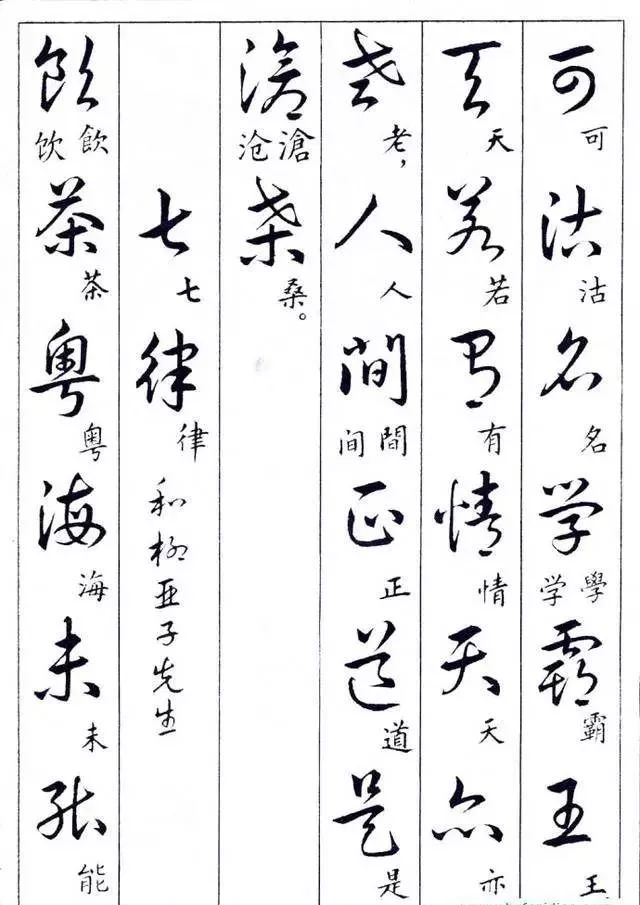 可沽名学霸王
可沽名學学霸王
天若有情天亦
天若有情天亦
老人间正道是
老，人間间正道是
沧桑
滄沧桑。
七律 和柳亚子先生
七律
饮茶粤海未能
飲饮茶粤海未能